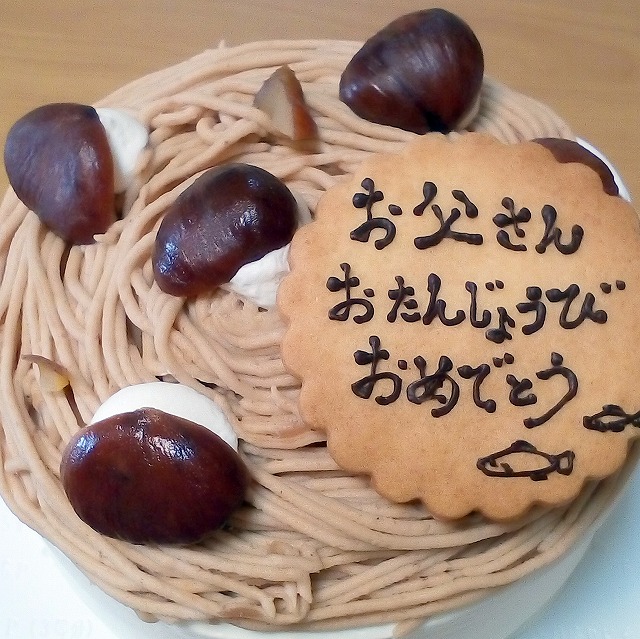 お父さん
おたんじょうび
おめでとう